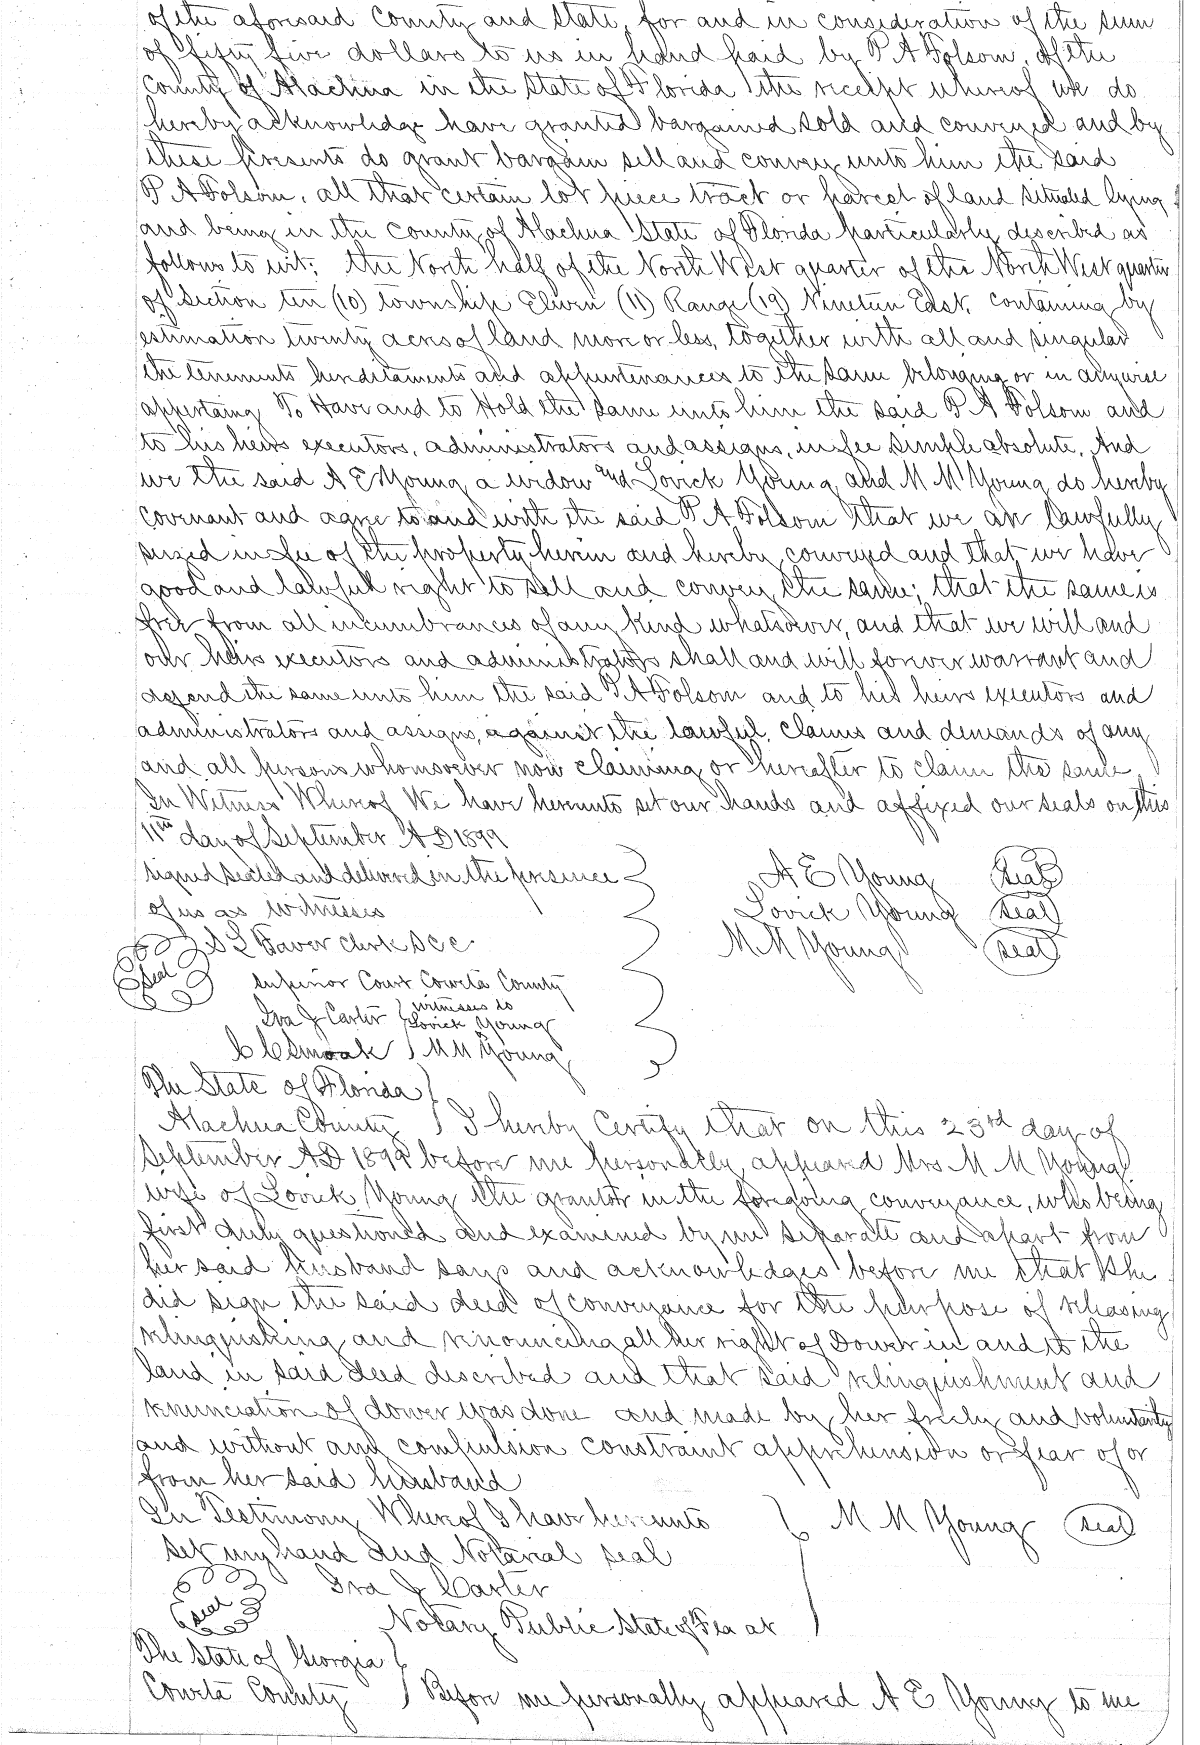 of the aforesaid County and State, for and in consideration of the sum
of fifty five dollars to us in hand paid by P A Folsom, of the
County of Alachua in the State of Florida the receipt whereof we do
hereby acknowledge have granted bargained sold and conveyed and by
these presents do grant bargain sell and convey unto him the said
P A Folsom, all that certain lot piece tract or parcel of land situated lying
and being in the County of Alachua State of Florida particularly described as
follows to wit; the North half of the North West quarter of the North West quarter
of Section ten (10) township Eleven (11) Range (19) Nineteen East, containing by
estimation twenty acres of land more or less, together with all and singular
the tenements hereditaments and appurtenances to the same belonging or in anywise
appertaing To Have and to Hold the same unto him the said P A Folsom and
to his heirs executors, administrators and assigns, in fee simple absolute, And
we the said A E Young a widow and Lovick Young and M M Young do hereby
covenant and agree to and with the said P A Folsom that we are lawfully
seized in fee of the property herein and hereby conveyed and that we have
good and lawful right to sell and convey the same; that the same is
free from all incumbrances of any kind whatsoever, and that we will and
our heirs executors and administrators shall and will forever warrant and
defend the same unto him the said P A Folsom and to his heirs executors and
administrators and assigns, against the lawful claims and demands of any
and all persons whomsoever now claiming or hereafter to claim the same
In Witness Whereof We have hereunto set our hands and affixed our seals on this
11th day of September A D 1899
signed sealed and delivered in the presence A E Young seal
of us as witnesses Lovick Young seal
L Faver clerk S C C M M Young seal
seal
Superior Court Coweta County
Ira J Carter witnesses to
Lovick Young
C C Smoak M M Young
The State of Florida
Alachua County I hereby Certify that on this 23rd day of
September A D 1899 before me personally appeared Mrs M M Young
wife of Lovick Young the grantor in the foregoing conveyance, who being
first duly questioned and examined by me separate and apart from
her said husband says and acknowledges before me that she
did sign the said deed of conveyance for the purpose of releasing
relinquishing and renouncing all her right of Dower in and to the
land in said deed described and that said relinquishment and
renunciation of dower was done and made by her freely and voluntarily
and without any compulsion constraint apprehension or fear of or
from her said husband
In Testimony Whereof I have hereunto M M Young seal
set my hand and Notarial seal
seal Ira J Carter
Notary Public State of Fla at
The State of Georgia
Coweta County Before me personally appeared A E Young to me